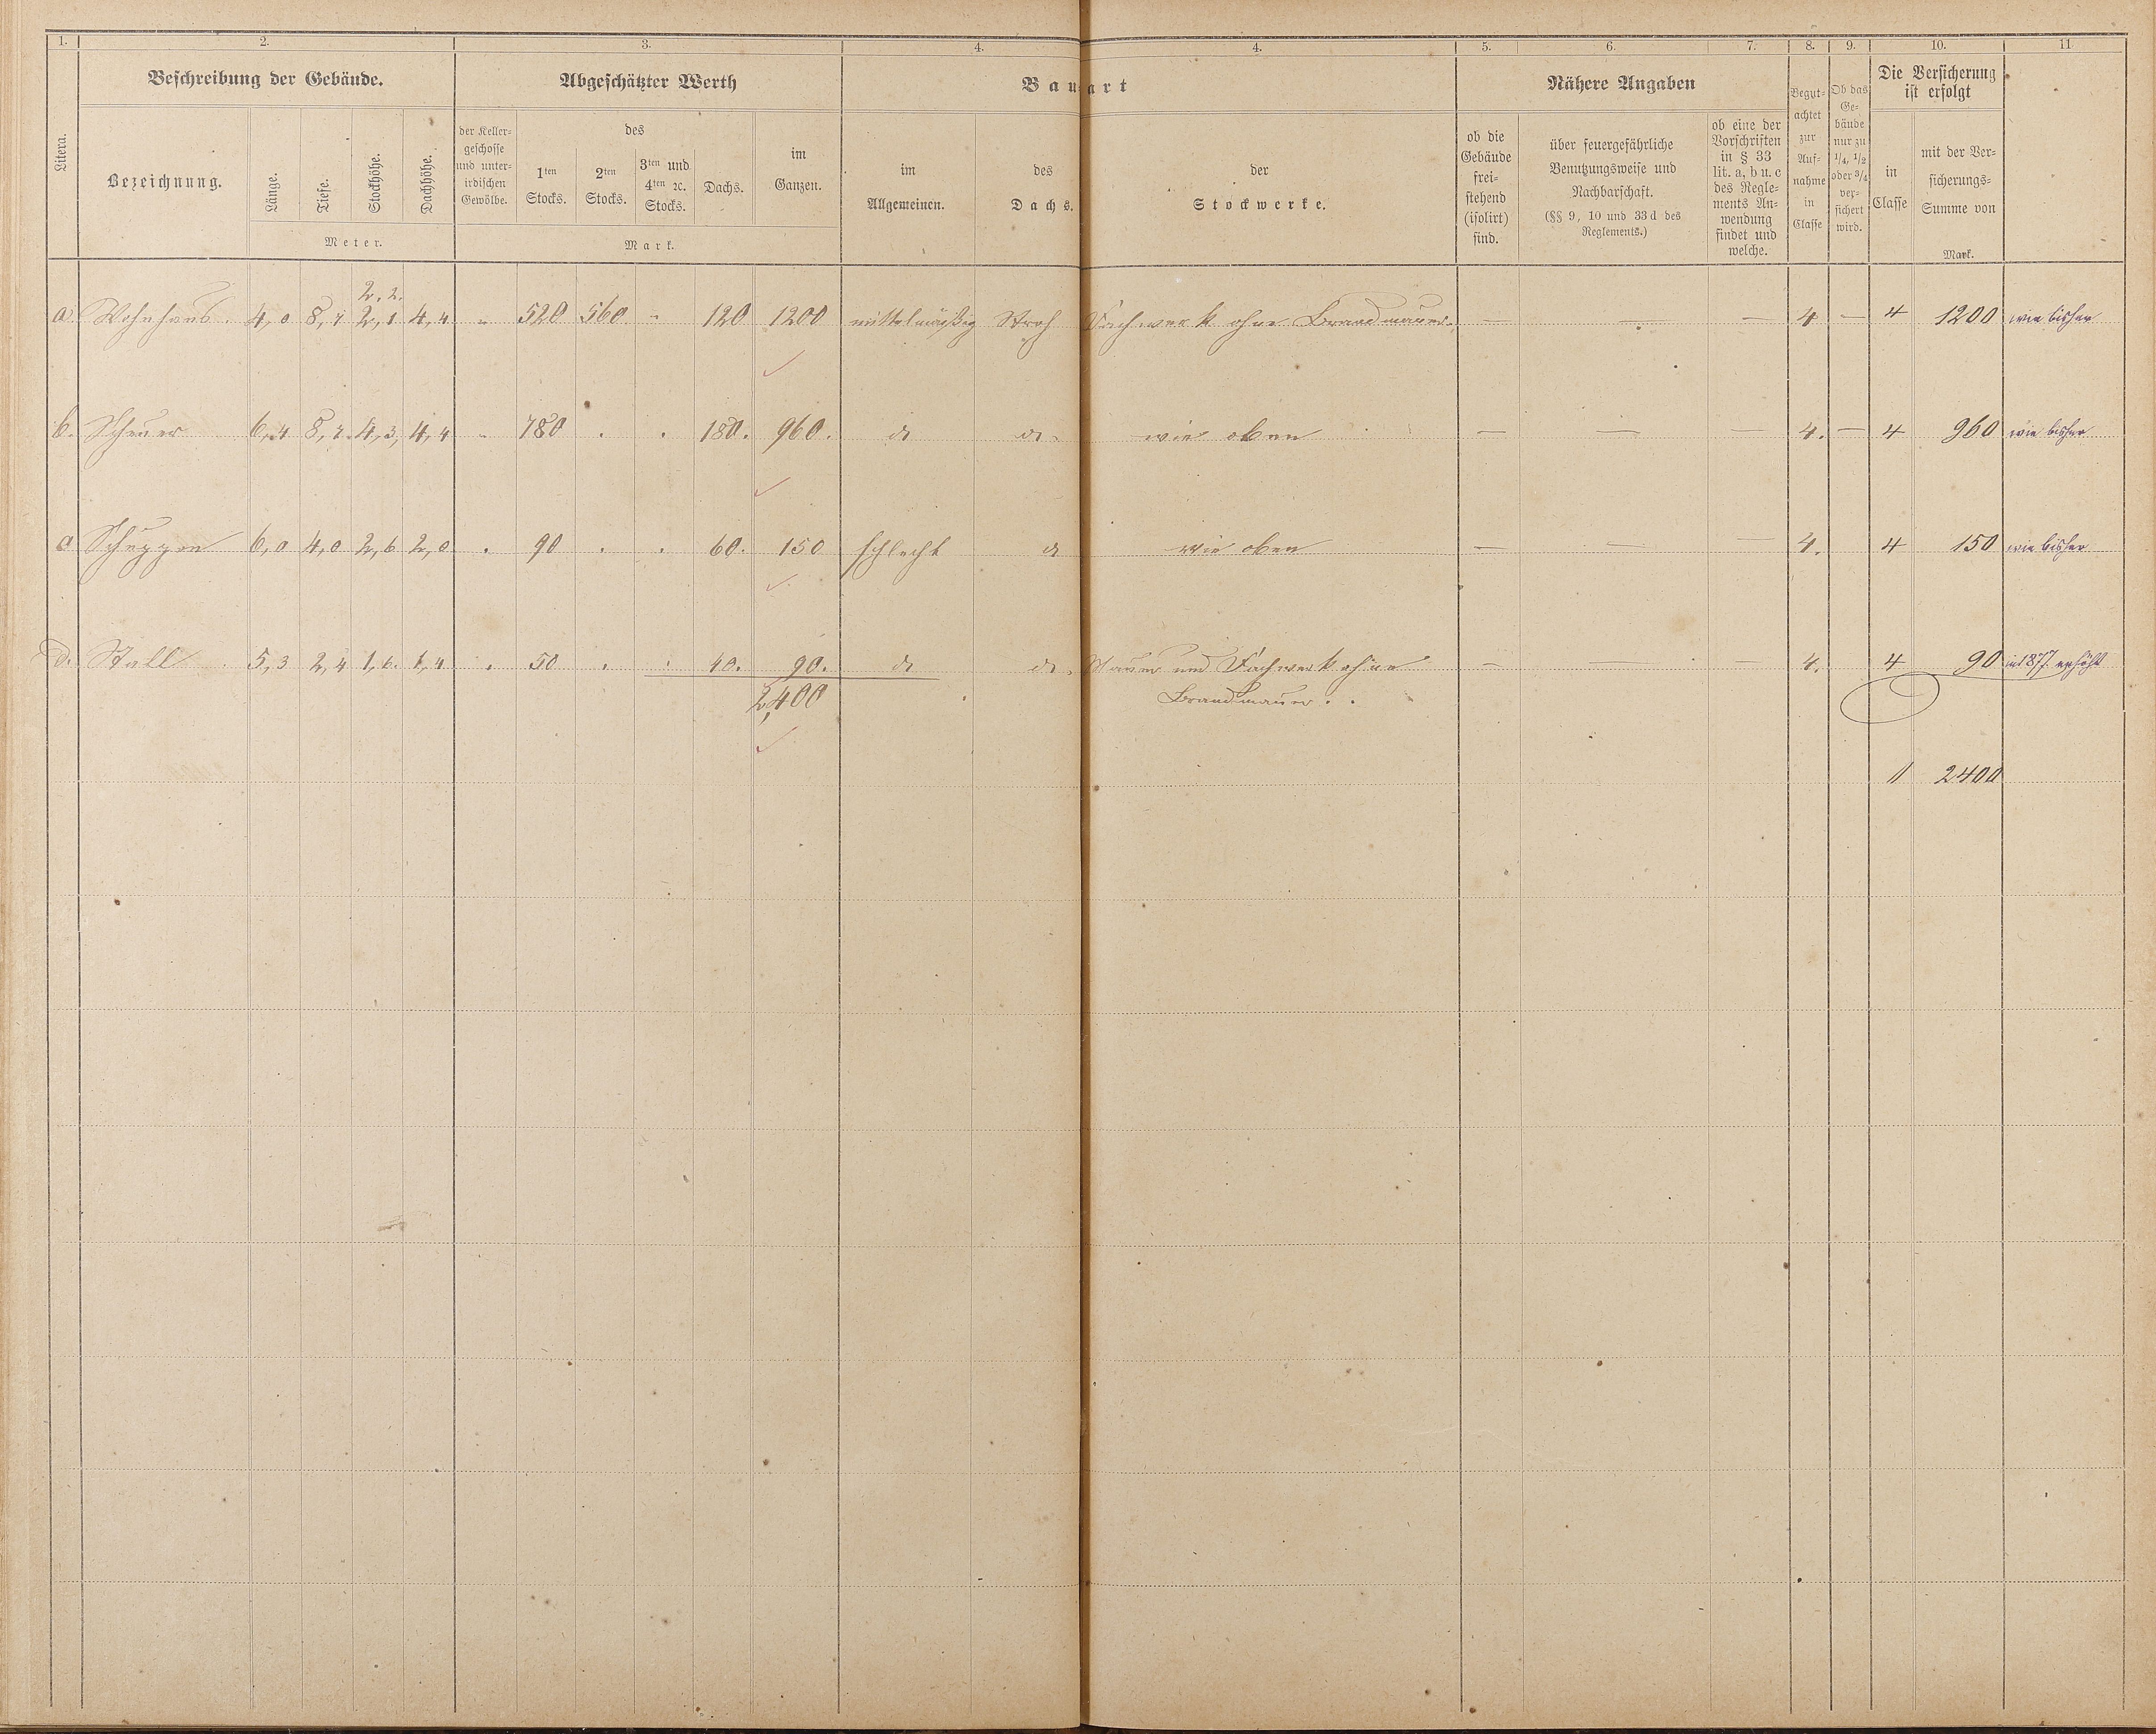 1. 2. 3. 4. 4. 5. 6. 7. 8. 9. 10. 11.
Litera.
Beschreibung der Gebäude.
Bezeichnung.
Länge.
Tiefe.
Stockhöhe.
Dachhöhe.
Meter.
Abgeschätzter Werth
der Keller-
geschosse
und unter-
irdischen
Gewölbe.
des
1ten
Stocks.
2ten
Stocks.
3ten und
4ten ꝛc.
Stocks.
Dachs.
im
Ganzen.
Mark.
Bauart
im
Allgemeinen.
des
Dachs.
der
Stockwerke.
Nähere Angaben
ob die
Gebäude
frei-
stehend
(isolirt)
sind.
über feuergefährliche
Benutzungsweise und
Nachbarschaft.
(§§ 9, 10 und 33 d des
Reglements.)
ob eine der
Vorschriften
in § 33
lit. a, b u. c
des Regle-
ments An-
wendung
findet und
welche.
Begut-
achtet
zur
Auf-
nahme
in
Classe
Ob das
Ge-
bäude
nur zu
1/4, 1/2
oder 3/4
ver-
sichert
wird.
Die Versicherung
ist erfolgt
in
Classe
mit der Ver-
sicherungs-
Summe von
Mark.
2,2.
a. Wohnhaus. 4,0 2,1 4,4 " 520 560 " 120 1200 mittelmäßig Stroh Fachwerk ohne Brandmauer. — — — 4 — 4 1200 wie bisher
b. Scheuer 6,4 4,3, 4,4 " 780 . . 180. 960. do do. wie oben — — — 4. — 4 960 wie bisher
c Schuppen 6,0 4,0 2,6 2,0 . 90 . . 60. 150 schlecht do wie oben — — — 4. 4 150 wie bisher
d. Stall . 5,3 2,4 1,6. 1,4 . 50 . . 40. 90. do do. Mauer und Fachwerk ohne — — — 4. 4 90 in 1877 erhöht
2,400 Brandmauer..
2400